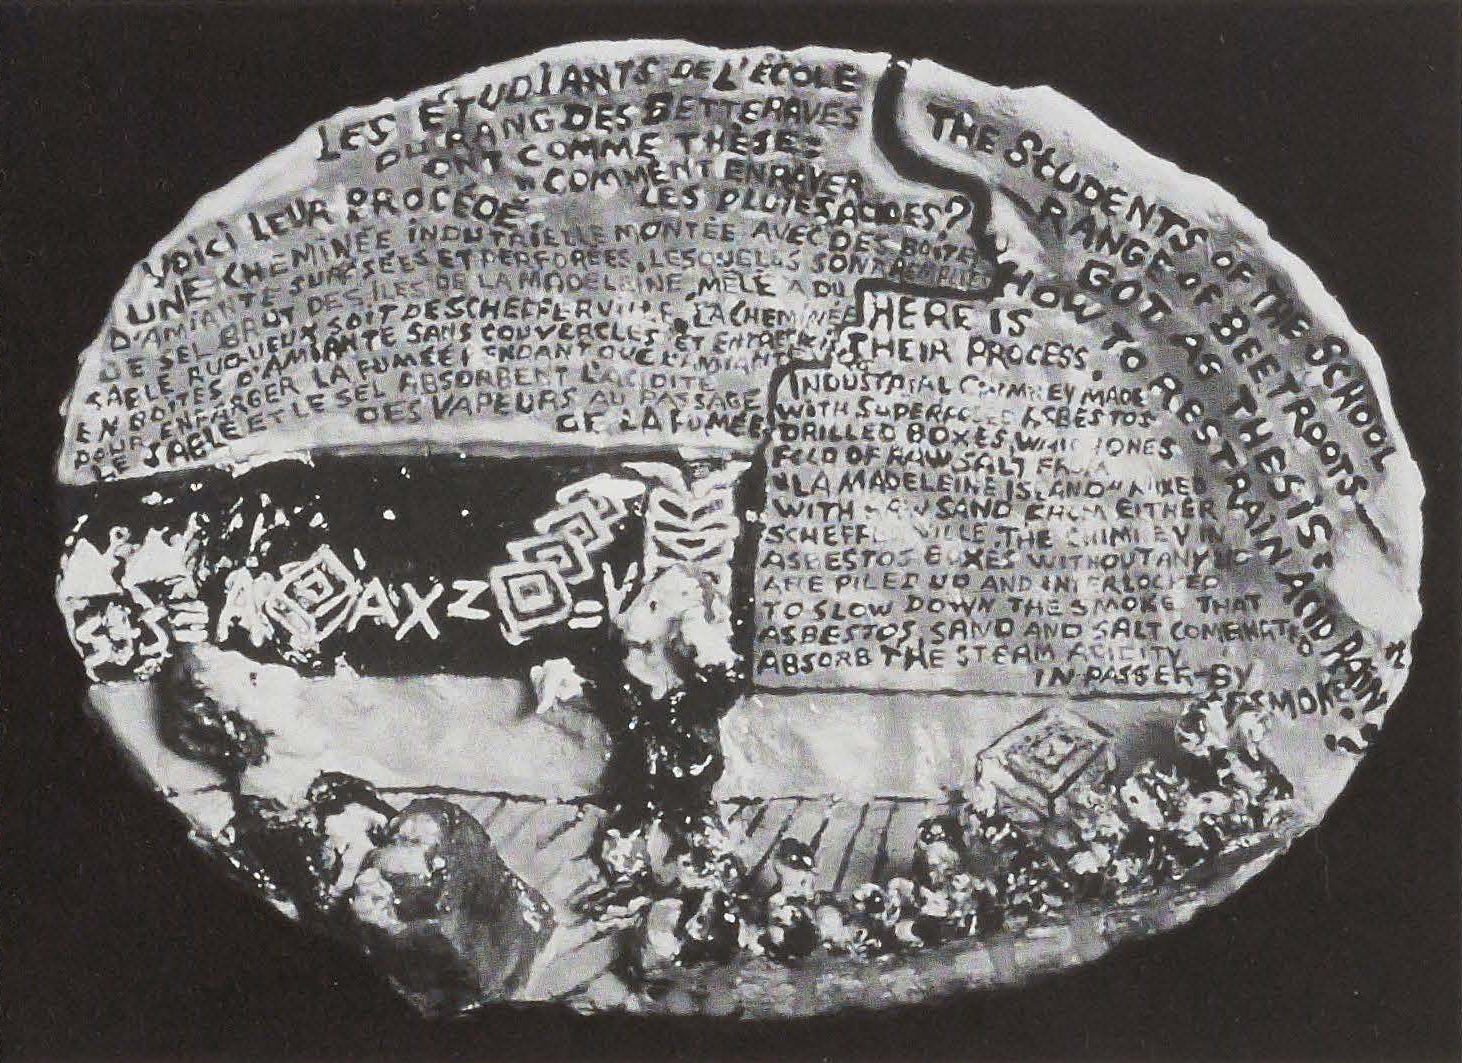 LES ÉTUDIANTS DE L'ÉCOLE
DU RANG DES BETTERAVES
ONT COMME THÈSE:
"COMMENT ENRAYER
LES PLUIES ACIDES?
VOICI LEUR PROCÉDÉ
UNE CHEMINÉE INDUTRIELLE MONTÉE AVEC DES BOITES
D'AMIANTE ET PERFORÉES, LESQUELLES SONT REMPLIES
DE SEL BRUT DES ÎLES DE LA MADELEINE, MÊLÉ À DU
SABLE RUGUEUX SOIT DE SCHEFFERVILLE, LA CHEMINÉE
EN BOITES D'AMIANTE SANS COUVERCLES ET
POUR LA FUMÉE QUE L'AMIANTE
LE SABLE ET LE SEL ABSORBENT L'ACIDITÉ
DES VAPEURS AU PASSAGE
LA FUMÉE
THE STUDENTS OF THE SCHOOL
RANGE OF BEETROOTS
GOT AS THESIS:
HOW TO RESTRAIN ACID RAIN
HERE IS
THEIR PROCESS.
INDUSTRIAL CHIMNEY MADE
WITH ASBESTOS
DRILLED BOXES
OF RAW SALT
"LA MADELEINE ISLAND" MIXED
WITH SAND FROM EITHER
THE CHIMNEY IN
ASBESTOS BOXES WITHOUT ANY
ARE PILED UP AND INTERLOCKED
TO SLOW DOWN THE SMOKE THAT
ASBESTOS, SAND AND SALT
ABSORB THE STEAM ACIDITY
IN PASSER-BY
OF SMOKE.